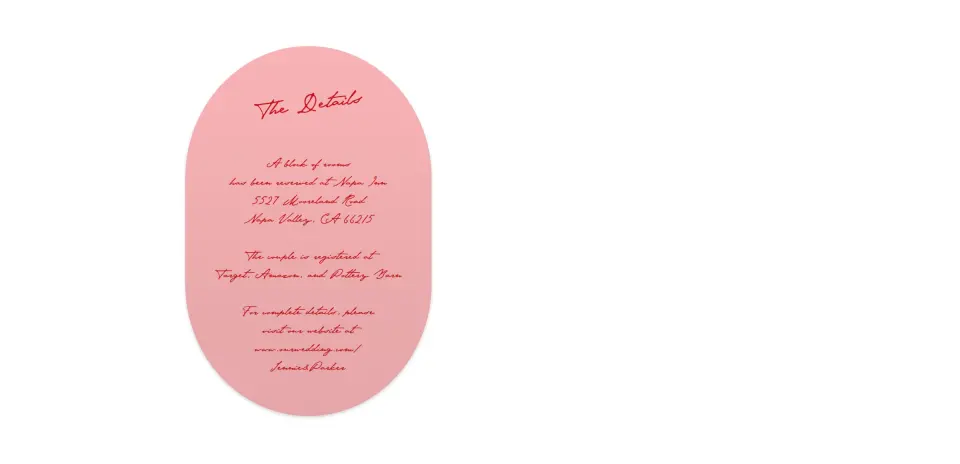 The Details
A block of rooms
has been reserved at Napa Inn
5527 Mooreland Road
Napa Valley, CA 66215
The couple is registered at
Target, Amazon, and Pottery Barn
For complete details, please
visit our website at
www.ourwedding.com/
Jennie&Parker